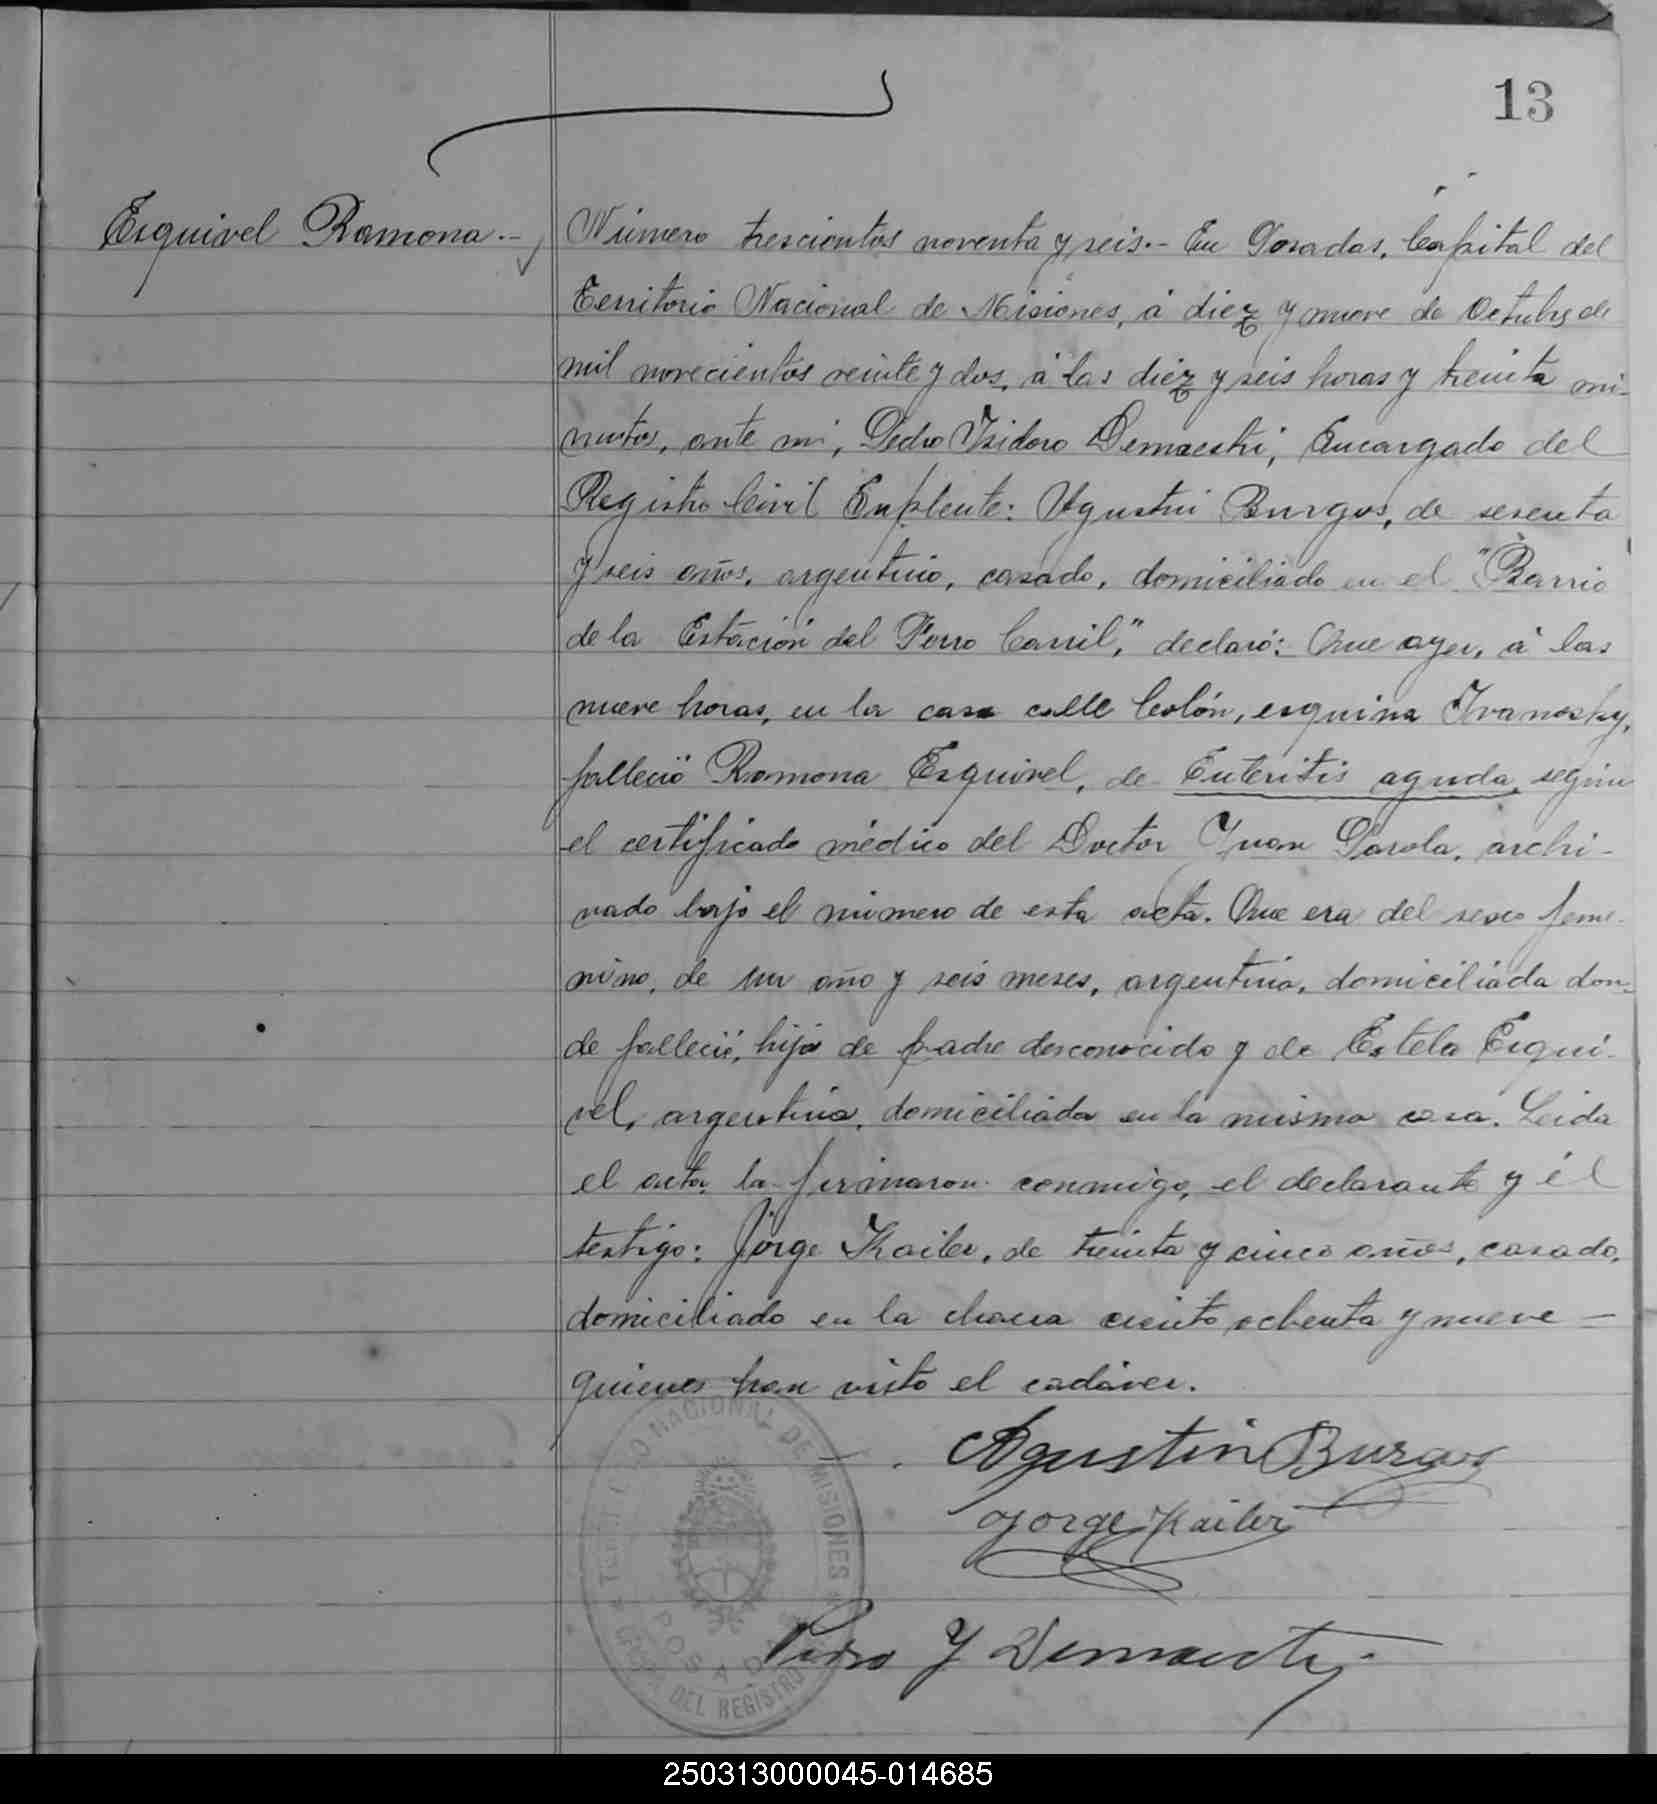 13
Esquivel Ramona.-
Número trescientos noventa y seis.- En Posadas, Capital del
Territorio Nacional de Misiones, á diez y nueve de Octubre de
mil novecientos veinte y dos, á las diez y seis horas y treinta mi-
nutos, ante mi, Pedro Isidoro Demaestri, Encargado del
Registro Civil Suplente: Agustin Burgos, de sesenta
y seis años, argentino, casado, domiciliado en el "Barrio
de la Estación del Ferro Carril," declaró: Que ayer, á las
nueve horas, en la casa calle Colón, esquina Ivanosky,
falleció Ramona Esquivel, de Enteritis aguda, según
el certificado médico del Doctor Juan Parola, archi-
vado bajo el número de esta acta. Que era del sexo feme-
nino, de un año y seis meses, argentina, domiciliada don-
de falleció, hija de padre desconocido y de Estela Esqui-
vel, argentina, domiciliada en la misma casa. Leida
el acta, la firmaron conmigo, el declarante y él
testigo: Jorge Kailer, de treinta y cinco años, casado,
domiciliado en la chacra ciento ochenta y nueve -
quienes han visto el cadáver.
Agustin Burgos
Jorge Kailer
Pedro Y Demaestri
TERRITORIO NACIONAL DE MISIONES
POSADAS
DEL REGISTRO
250313000045-014685